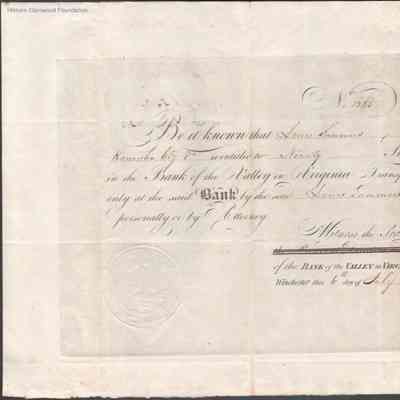 Historic Glenwood Foundation
No
Be it known that Lewis Summers
entitled to Ninety
in the Bank of the Valley in Virginia
only at the said Bank by the said Lewis Summers
personally or by Attorney
Witness the
of the BANK of the VALLEY in
Winchester this 6th day of July